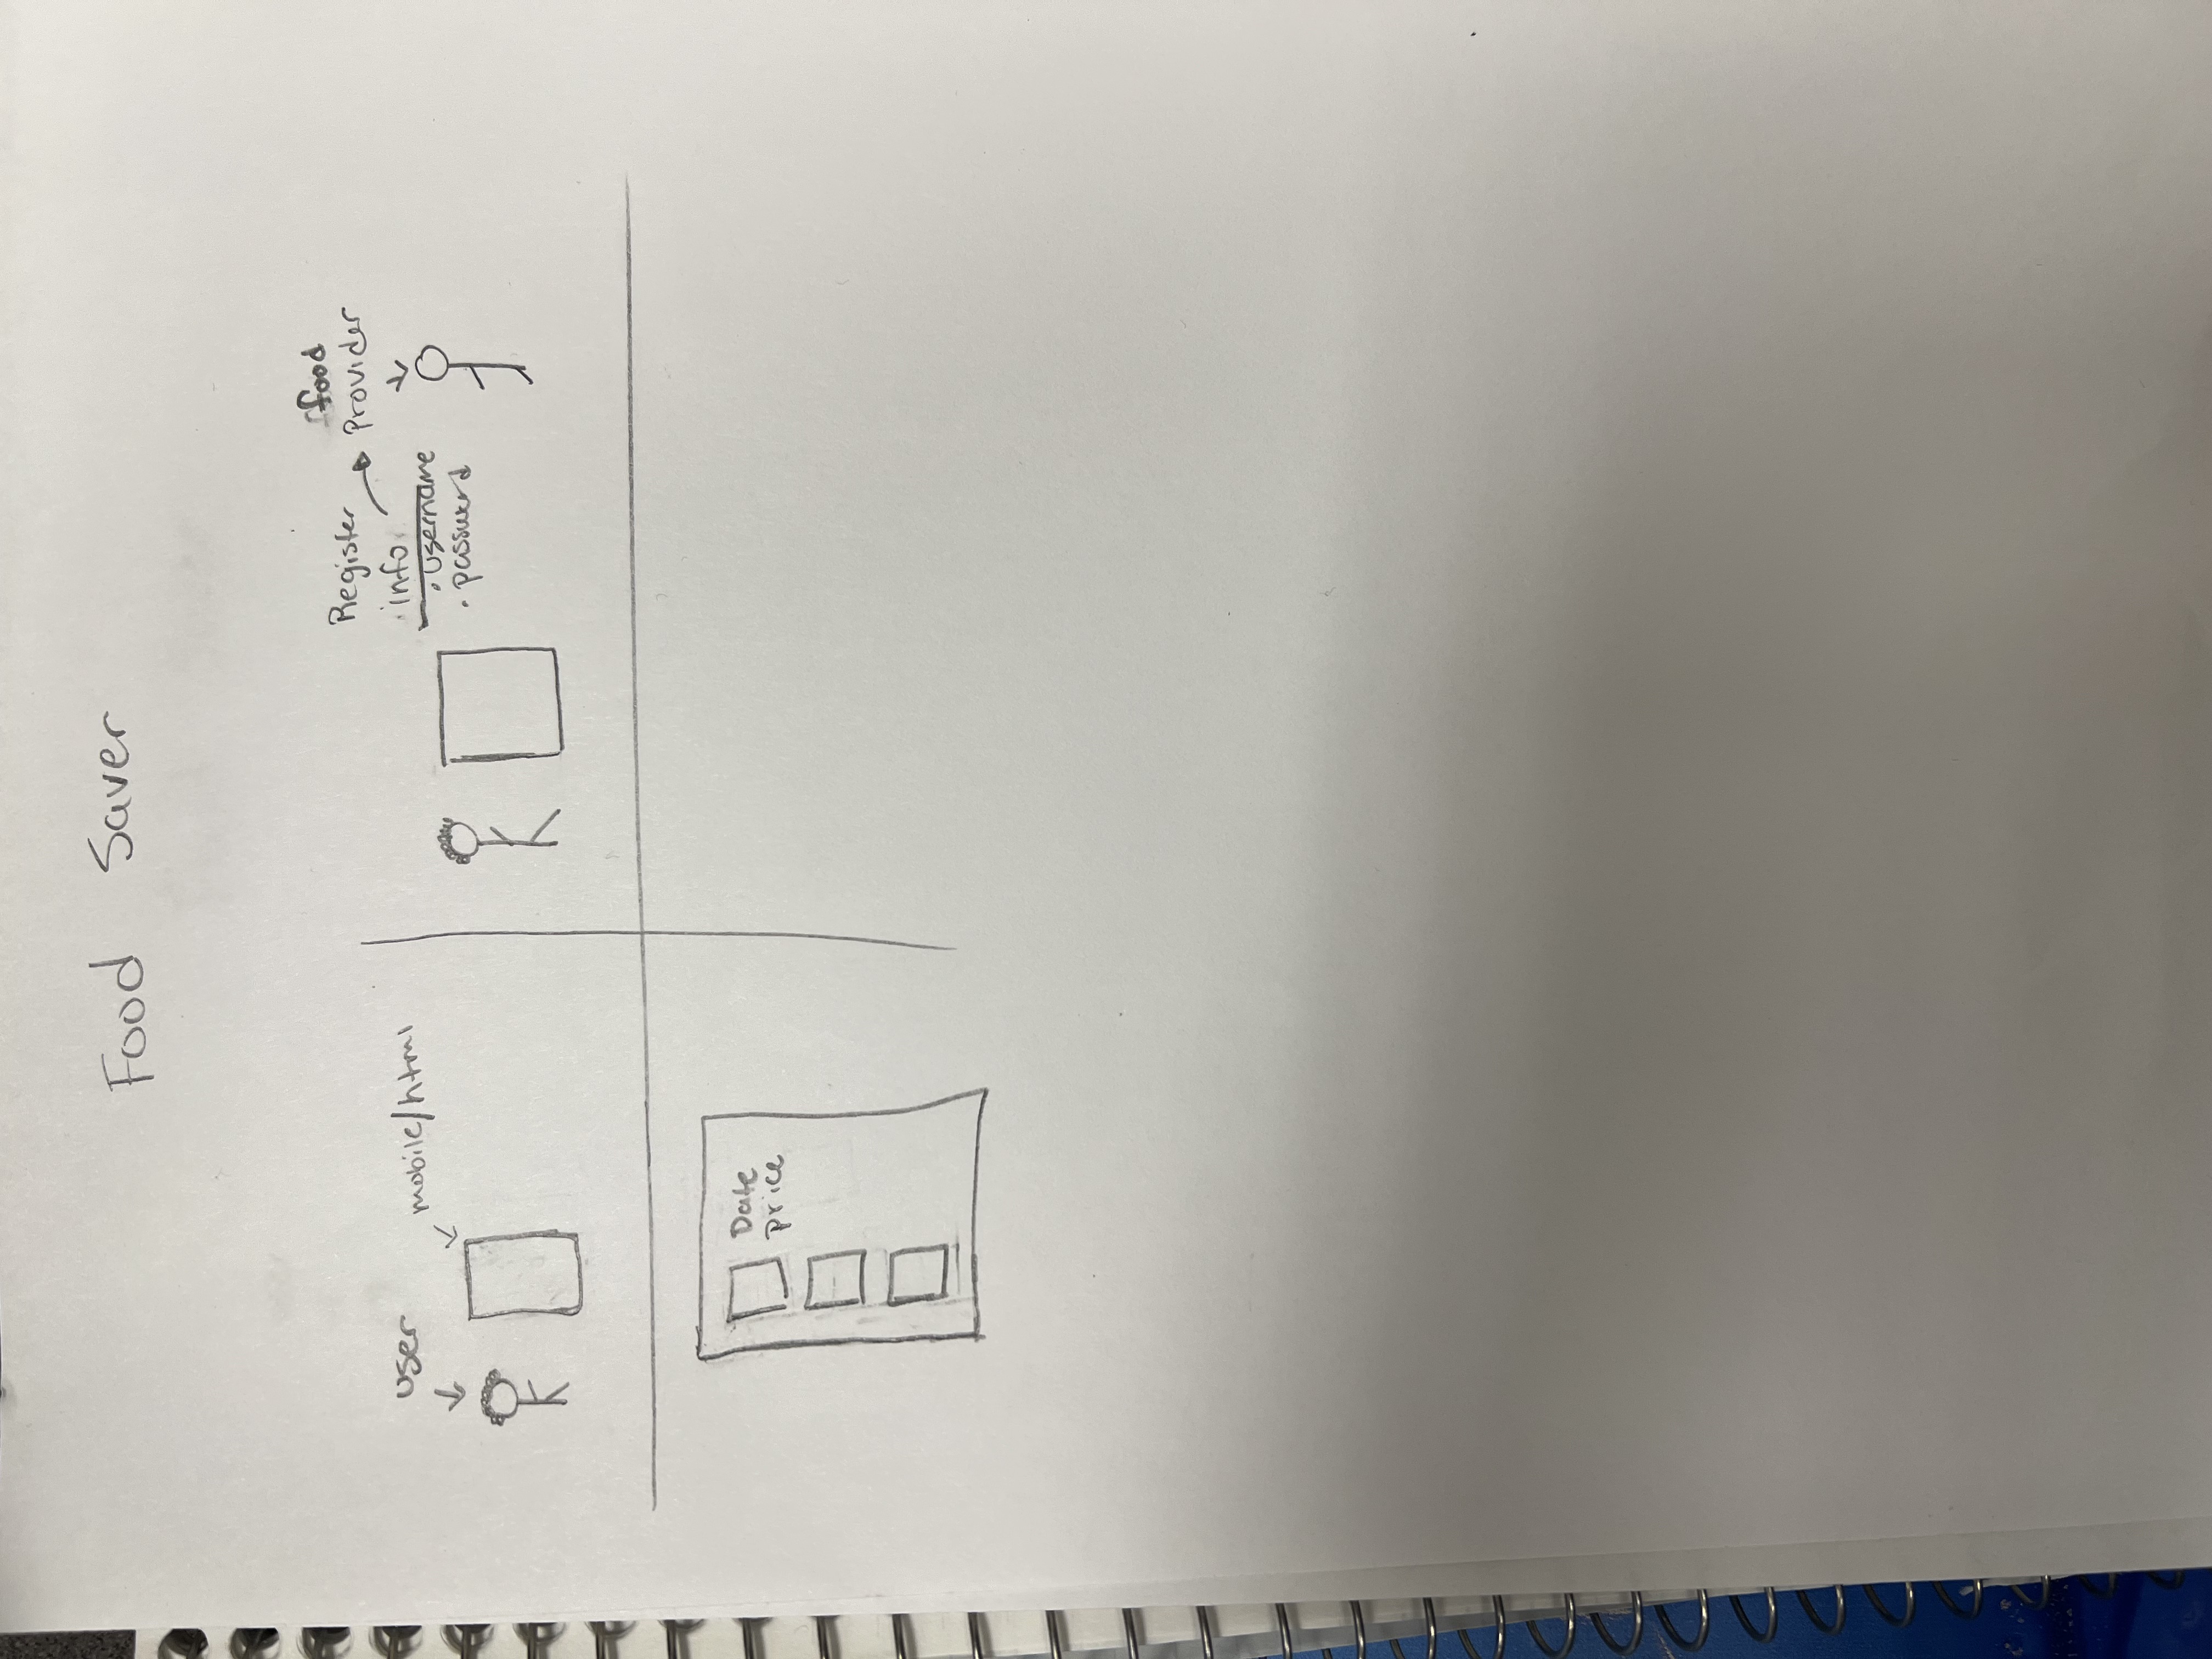 Food Saver
user
mobile/html
Register
info
• username
• password
food
Provider
Date
price